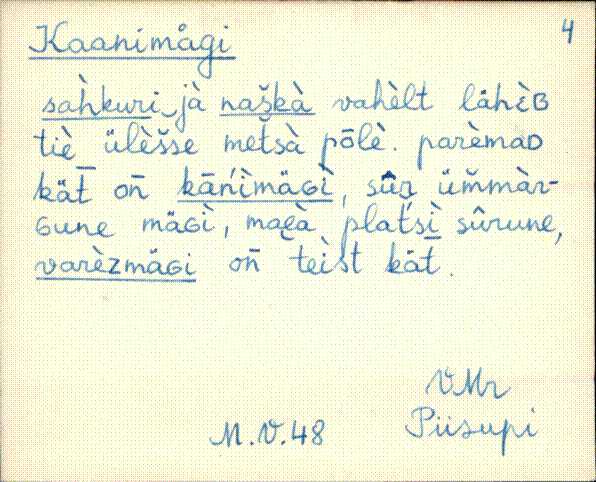 Kaanimägi
4
sàhkuri jà naškà vahèlt lähèʙ
tìè ülèšse metsà pōlè. parèmaᴅ
kät̄ on̄ kāńìmäɢì, sûr üm̆màr-
ɢune mäɢì, maɛà plat́sì sûrune,
varèzmäɢi on̄ teìst kät̄.
VMr
M.V.48 Piisupi